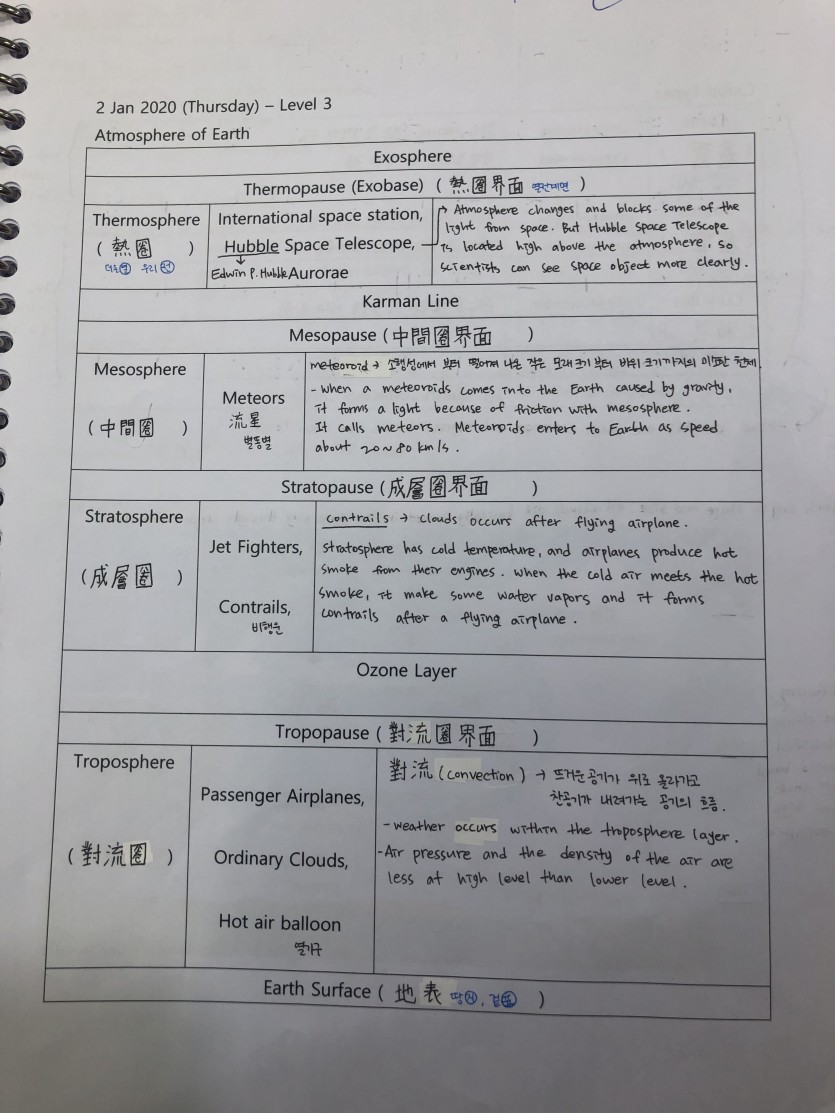 2 Jan 2020 (Thursday) – Level 3
Atmosphere of Earth
Exosphere
Thermopause (Exobase) ( 熱圈界面 열권계면 )
Thermosphere
( 熱圈 )
더울열 우리권
International space station,
Hubble Space Telescope,
Edwin P. Hubble Aurorae
→ Atmosphere changes and blocks some of the
light from space. But Hubble Space Telescope
is located high above the atmosphere, so
scientists can see space object more clearly.
Karman Line
Mesopause ( 中間圈界面 )
Mesosphere
( 中間圈 )
Meteors
流星
별똥별
meteoroid → 소행성에서 부터 떨어져 나온 작은 모래크기 부터 바위 크기까지의 천체
- When a meteoroids comes into the Earth caused by gravity,
it forms a light because of friction with mesosphere.
It calls meteors. Meteoroids enters to Earth as speed
about 20~80 km/s.
Stratopause ( 成層圈界面 )
Stratosphere
( 成層圈 )
Jet Fighters,
Contrails,
비행운
contrails → clouds occurs after flying airplane.
Stratosphere has cold temperature, and airplanes produce hot
smoke from their engines. When the cold air meets the hot
smoke, it make some water vapors and it forms
contrails after a flying airplane.
Ozone Layer
Tropopause ( 對流圈界面 )
Troposphere
( 對流圈 )
Passenger Airplanes,
Ordinary Clouds,
Hot air balloon
열기구
對流 (convection) → 뜨거운공기가 위로 올라가고
찬공기가 내려가는 공기의 흐름.
- weather occurs within the troposphere layer.
- Air pressure and the density of the air are
less at high level than lower level.
Earth Surface ( 地表 땅지, 겉표 )